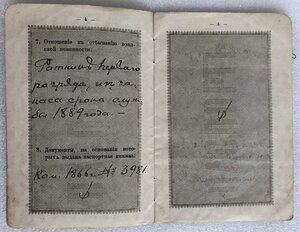 — 4 —
7. Отношеніе къ отбыванію воин-
ской повинности:
Ратникъ перваго
разряда, изъ за-
паса срока служ-
бы 1889 года. —
8. Документы, на основаніи кото-
рыхъ выдана паспортная книжка:
1866 г. № 3981.